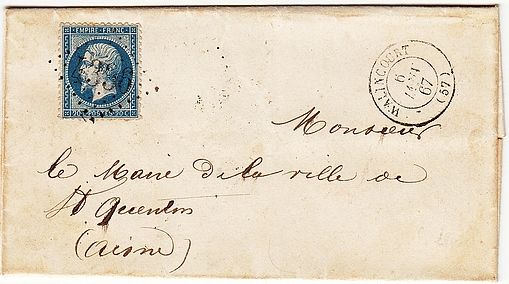 EMPIRE FRANC
20c POSTES 20c
WALINCOURT
6
67
(57)
Monsieur
le Maire de la ville de
St Quentin
(aisne)